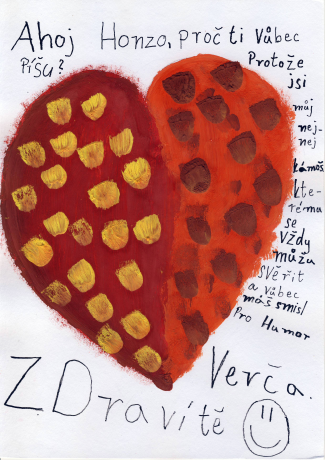 Ahoj Honzo, proč ti vůbec
Píšu?
Protože
jsi
můj
nej-
nej
kámoš.
kte-
rému
se
vždy
můžu
svěřit
a vůbec
máš smisl
Pro Humor
Verča.
ZDravítě